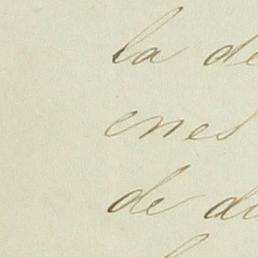 la de
enes
de di